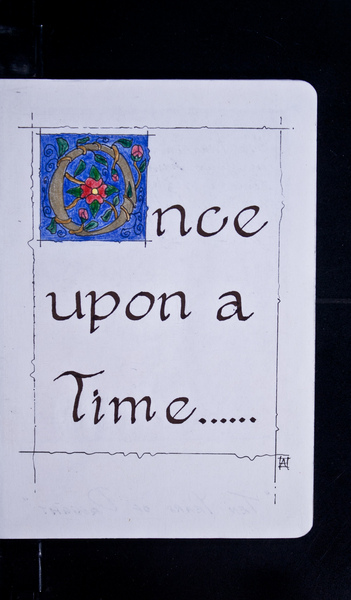 Once
upon a
Time......